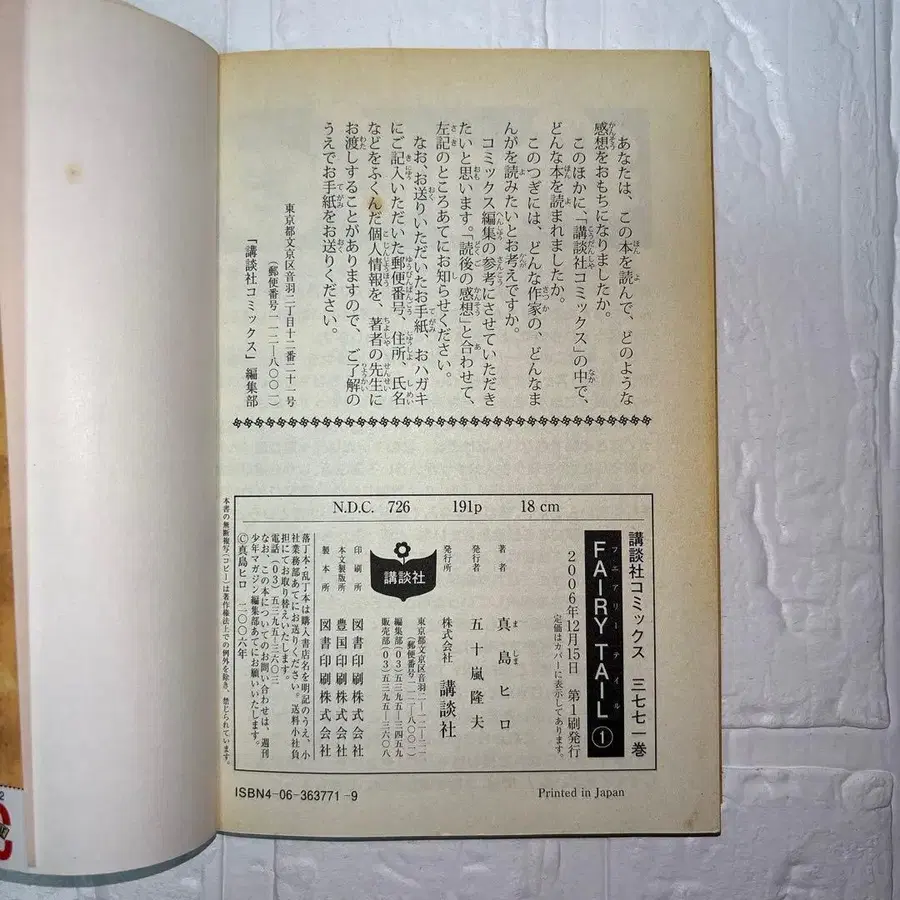 あなたは、この本を読んで、どのような
感想をおもちになりましたか。
このほかに、「講談社コミックス」の中で、
どんな本を読まれましたか。
このつぎには、どんな作家の、どんなま
んがを読みたいとお考えですか。
コミックス編集の参考にさせていただき
たいと思います。「読後の感想」と合わせて、
左記のところあてにお知らせください。
なお、お送りいただいたお手紙、おハガキ
にご記入いただいた郵便番号、住所、氏名
などをふくんだ個人情報を、著者の先生に
お渡しすることがありますので、ご了解の
うえでお手紙をお送りください。
東京都文京区音羽二丁目十二番二十一号
(郵便番号一一二-八〇〇一)
「講談社コミックス」編集部
N.D.C. 726 191p 18 cm
講談社コミックス 三七七一巻
フェアリーテイル
FAIRY TAIL ①
2006年12月15日 第1刷発行
定価はカバーに表示してあります。
著者 真島ヒロ
発行者 五十嵐隆夫
発行所 株式会社 講談社
講談社
東京都文京区音羽二-一二-二一
(郵便番号一一二-八〇〇一)
編集部(03)五三九五-三四五九
販売部(03)五三九五-三六〇八
印刷所 図書印刷株式会社
本文製版所 豊国印刷株式会社
製本所 図書印刷株式会社
落丁本・乱丁本は購入書店名を明記のうえ、小
社業務部あてにお送りください。送料小社負
担にてお取り替えいたします。
電話(03)五三九五-三六〇三
なお、この本についてのお問い合わせは、週刊
少年マガジン編集部あてにお願いいたします。
©真島ヒロ 二〇〇六年
本書の無断複写(コピー)は著作権法上での例外を除き、禁じられています。
ISBN4-06-363771-9
Printed in Japan